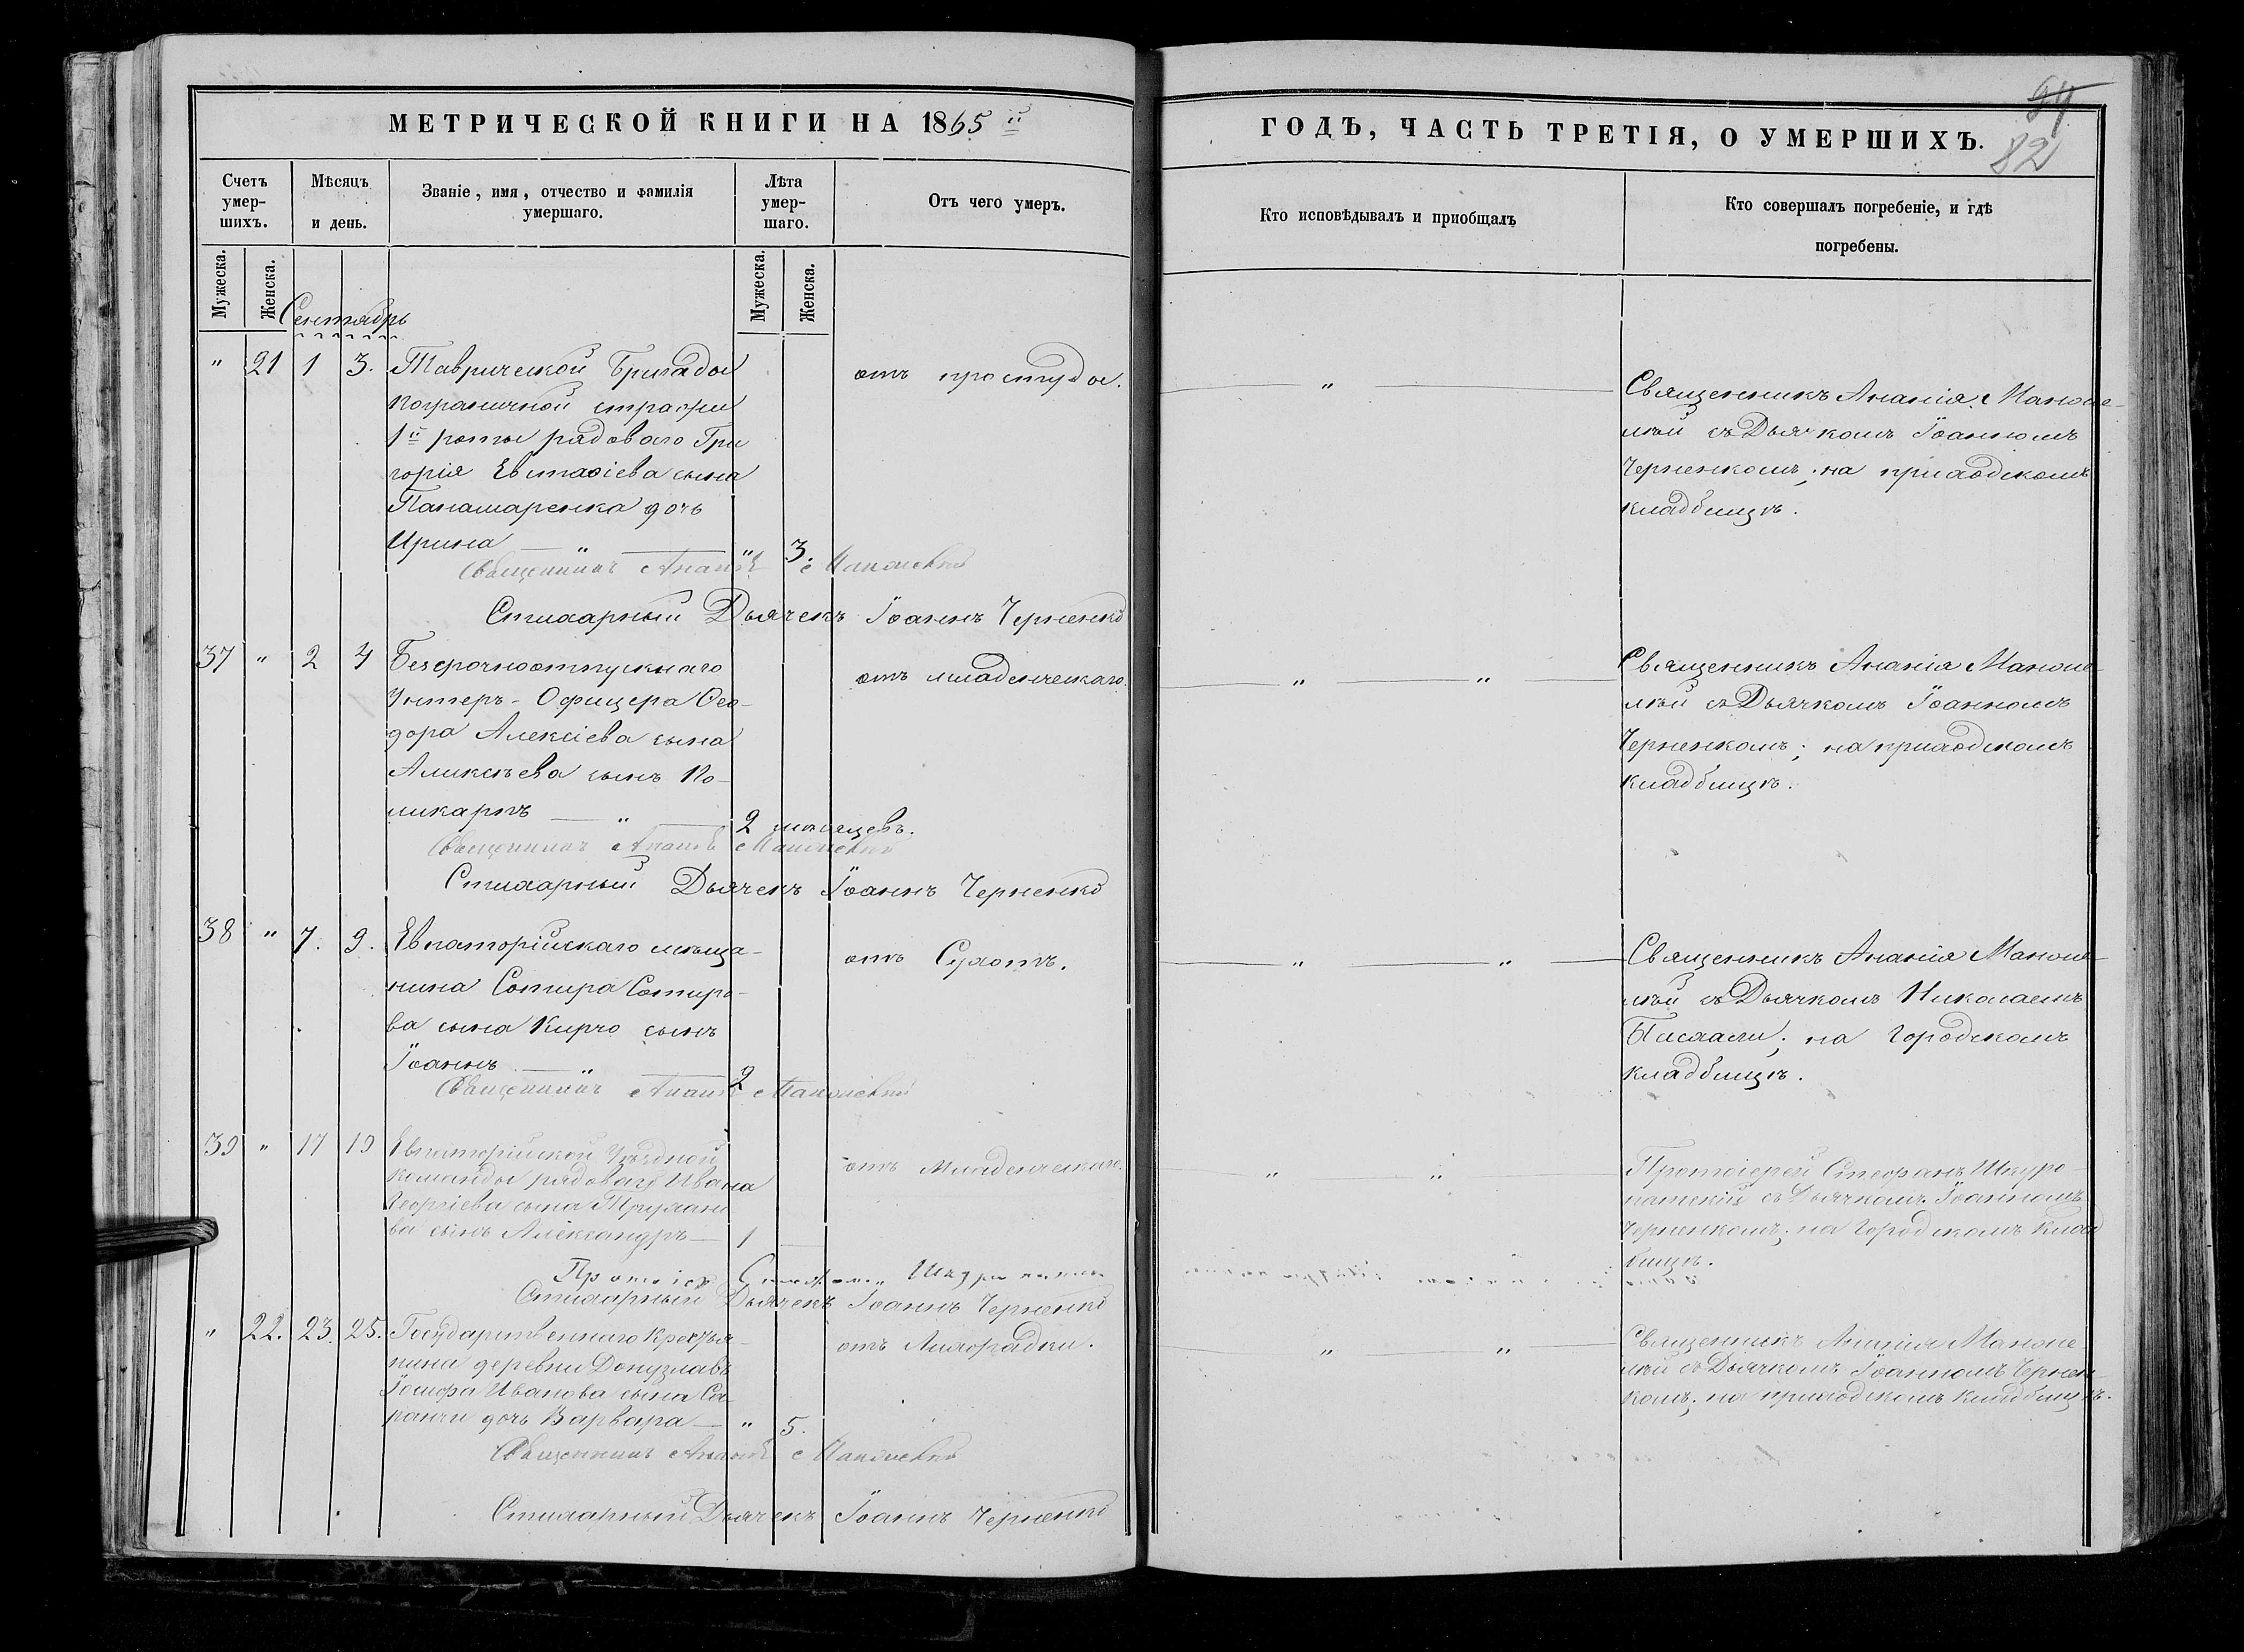 МЕТРИЧЕСКОЙ КНИГИ НА 1865й
Счетъ умер-шихъ.
Мѣсяцъ и день.
Званіе, имя, отчество и фамилія умершаго.
Лѣта умер-шаго.
Отъ чего умеръ.
Мужеска.
Женска.
Мужеска.
Женска.
Сентябрь
" 21 1 3. Таврической Бригады
пограничной стражи
1й роты рядоваго Гри
горія Евстафіева сына
Панамаренка дочь
Ирина " " 3.
отъ простуды.
Священникъ Ананія Маколевскій
Стихарный Дьячекъ Іоаннъ Черненко
37 " 2 4 Безсрочноотпускнаго
Унтеръ-Офицера Ѳео-
дора Алексіева сына
Аликсѣева сынъ По-
ликарпъ " 2 мѣсяцевъ.
отъ младенческаго.
Священникъ Ананія
Стихарный Дьячекъ Іоаннъ Черненко
38 " 7. 9. Евпаторійскаго мѣща-
нина Сотира Сотиро-
ва сына Кирчо сынъ
Іоаннъ " 2
отъ Сухотъ.
Священникъ Ананія
39 " 17 19 Евпаторійской Уѣздной
команды рядоваго Ивана
Георгіева сына
ва сынъ Александръ 1
отъ Младенческаго.
Стихарный Дьячекъ Іоаннъ Черненко
" 22. 23. 25. Государственнаго Крестья-
нина деревни Донузлавъ
Іосифа Иванова сына Са
ранчи дочь Варвара " 5.
отъ Лихорадки.
Священникъ Ананія
Стихарный Дьячекъ Іоаннъ Черненко
82
ГОДЪ, ЧАСТЬ ТРЕТІЯ, О УМЕРШИХЪ.
Кто исповѣдывалъ и приобщалъ
Кто совершалъ погребеніе, и гдѣ
погребены.
"
Священникъ Ананія
съ Дьячкомъ Іоанномъ
Черненкомъ; на приходскомъ
кладбищѣ.
" "
Священникъ Ананія
съ Дьячкомъ Іоанномъ
Черненкомъ; на приходскомъ
кладбищѣ.
" "
Священникъ Ананія
съ Дьячкомъ Николаемъ
на Городскомъ
кладбищѣ.
" "
Протоіерей Стефанъ Шкуро-
патскій съ Дьячкомъ Іоанномъ
Черненкомъ; на Городскомъ клад
бищѣ.
" "
Священникъ Ананія
съ Дьячкомъ Іоанномъ Чернен-
комъ; на приходскомъ кладбищѣ.